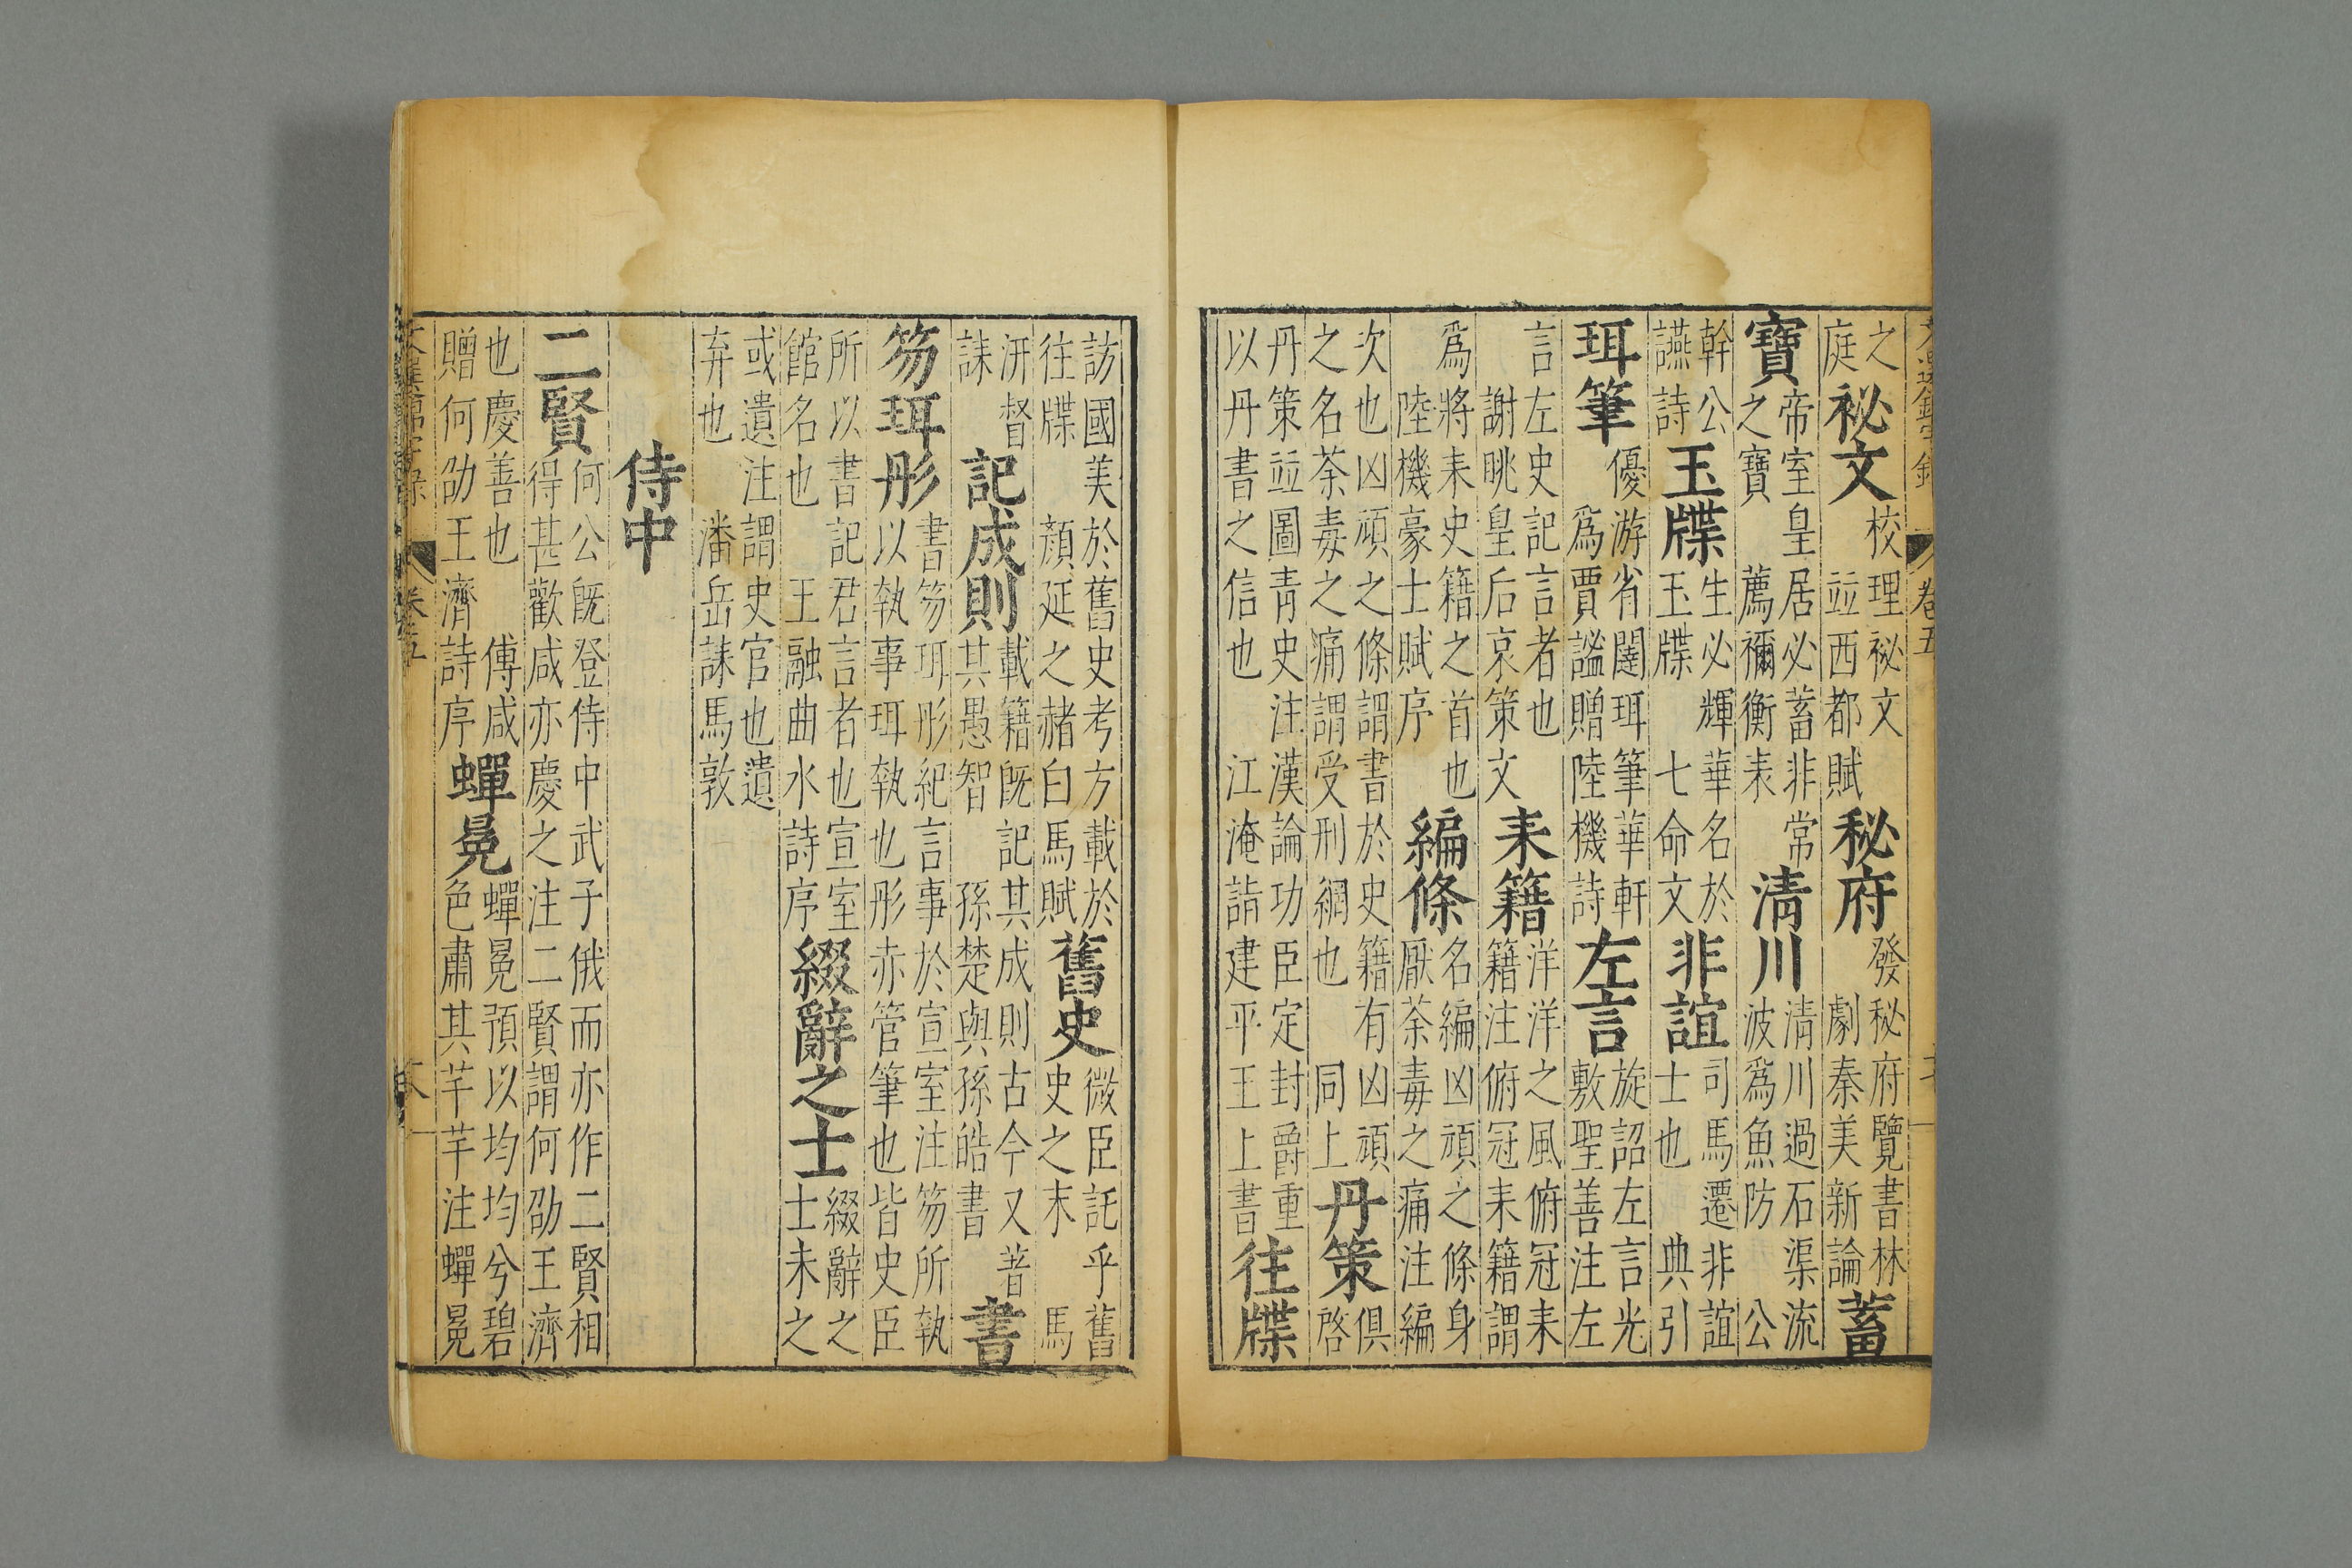 之
庭
祕文
校理祕文
並西都賦
秘府
發秘府覽書林
劇秦美新論
蓄
寶
帝室皇居必蓄非常
之寶 薦禰衡表
清川
清川過石渠流
波爲魚防 公
幹公
讌詩
玉牒
生必輝華名於
玉牒 七命文
非誼
司馬遷非誼
士也 典引
珥筆
優游省闥珥筆華軒
爲賈謐贈陸機詩
左言
旋詔左言光
敷聖善注左
言左史記言者也
謝眺皇后哀策文
耒籍
洋洋之風俯冠耒
籍注俯冠耒籍謂
爲將耒史籍之首也
陸機豪士賦序
編條
名編凶頑之條身
厭荼毒之痛注編
次也凶頑之條謂書於史籍有凶頑
之名荼毒之痛謂受刑網也 同上
丹策
俱
啓
丹策並圖青史注漢論功臣定封爵重
以丹書之信也 江淹詣建平王上書
往牒
訪國美於舊史考方載於
往牒 顏延之赭白馬賦
舊史
微臣託乎舊
史之末 馬
汧督
誄
記成則
載籍既記其成則古今又著
其愚智 孫楚與孫皓書
書
笏珥彤
書笏珥彤紀言事於宣室注笏所執
以執事珥執也彤赤管筆也皆史臣
所以書記君言者也宣室
館名也 王融曲水詩序
綴辭之士
綴辭之
士未之
或遺注謂史官也遺
弃也 潘岳誄馬敦
侍中
二賢
何公既登侍中武子俄而亦作二賢相
得甚歡咸亦慶之注二賢謂何劭王濟
也慶善也 傅咸
贈何劭王濟詩序
蟬冕
蟬冕預以均均兮碧
色肅其芊芊注蟬冕